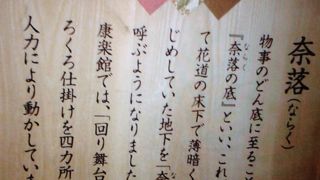 奈落(ならく)
物事のどん底に至ること
『奈落の底』といい、これ
て花道の床下で薄暗く
じめしていた地下を「奈
呼ぶようになりました
康楽館では、「回り舞台
ろくろ仕掛けを四カ所
人力により動かしていた